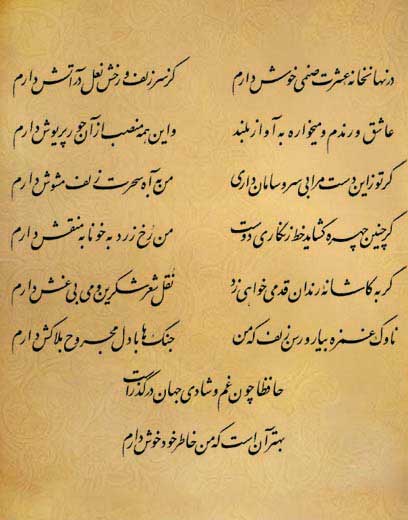 در نهانخانه عشرت صنمی خوش دارم کز سر زلف و رخش نعل در آتش دارم
عاشق و رندم و میخواره به آواز بلند واین همه منصب از آن حور پریوش دارم
گر تو زاین دست مرا بی سر و سامان داری من به آه سحرت زلف مشوش دارم
گر چنین چهره گشاید خط زنگاری دوست من رُخ زرد به خونابه منقش دارم
گر به کاشانه رندان قدمی خواهی زد نُقل شعر شکرین و می بی غش دارم
ناوک غمزه بیار و رسن زلف که من جنگ ها با دل مجروح بلاکش دارم
حافظا چون غم و شادی جهان در گذر است
بهتر آن است که من خاطر خود خوش دارم